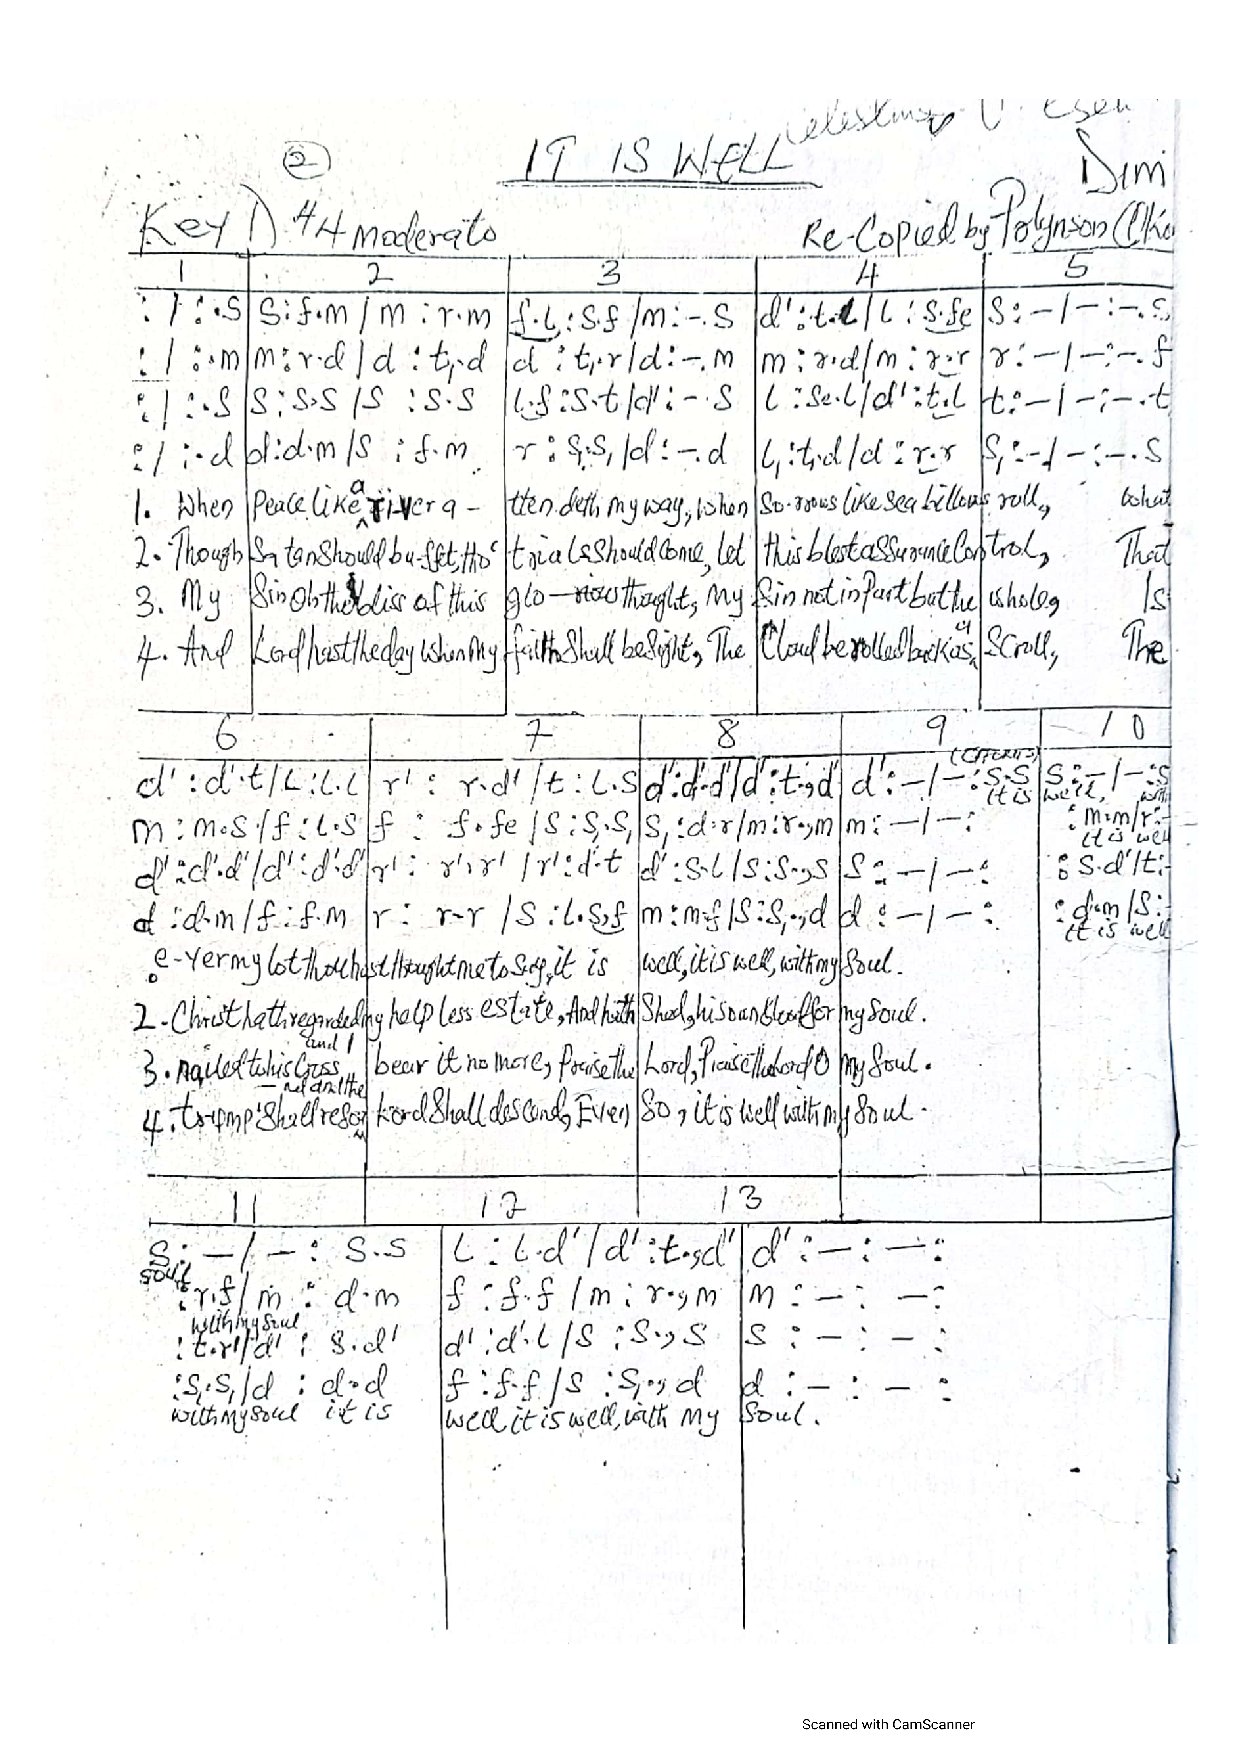 ②
IT IS WELL
Dim
Key D 4/4 moderato
Re-Copied by Polynson
1 2 3 4 5
: / : .S | S : f.m / m : r.m | f.L : S.f / m : -. S | d' : t.L / L : S.fe | S : - / - : -. S
: / : .m | m : r.d / d : t,.d | d : t,.r / d : -. m | m : r.d / m : r.r | r : - / - : -. f
: / : .S | S : S.S / S : S.S | L.f : S.t / d' : -. S | L : Se.L / d' : t.L | t : - / - : -. t
: / : .d | d : d.m / S : f.m | r : S,.S, / d : -. d | L, : t,.d / d : r.r | S, : - / - : -. S
1. When Peace like a river a- tten.deth my way, when So-rrows like sea billows roll, what
2. Though Sa tan should bu-ffet, tho' trials should come, let this blest assurance Control, That
3. My Sin Oh the bliss of this glo-rious thought, My Sin not in Part but the whole, Is
4. And Lord hast the day when My faith shall be sight, The Cloud be rolled back as a Scroll, The
6 7 8 9 10
d' : d'.t / L : L.L | r' : r.d' / t : L.S | d' : d'.d' / d' : t.,d' | d' : - / - : S.S | S : - / - : S
it is well, with
m : m.S / f : L.S | f : f.fe / S : S,.S, | S, : d.r / m : r.,m | m : - / - : | : m.m / r : -
it is well
d' : d'.d' / d' : d'.d' | r' : r'.r' / r' : d'.t | d' : S.L / S : S.,S | S : - / - : | : S.d' / t : -
d : d.m / f : f.m | r : r.r / S : L.S,f | m : m.f / S : S,.,d | d : - / - : | : d.m / S : -
it is well
e-ver my lot thou hast thought me to say, it is well, it is well, with my Soul.
2. Christ hath regarded my help less estate, And hath Shed, his own blood for my Soul.
3. nailed to his Cross and I bear it no more, Praise the Lord, Praise the Lord O My Soul.
4. trump shall resound and the Lord Shall descend, Even So, it is well with my Soul.
11 12 13
S : - / - : S.S | L : L.d' / d' : t.,d' | d' : - : - :
Soul
: r.f / m : d.m | f : f.f / m : r.,m | m : - : - :
with my Soul
: t.r' / d' : S.d' | d' : d'.L / S : S.,S | S : - : - :
: S,.S, / d : d.d | f : f.f / S : S,.,d | d : - : - :
with my Soul it is well it is well, with my Soul.
Scanned with CamScanner